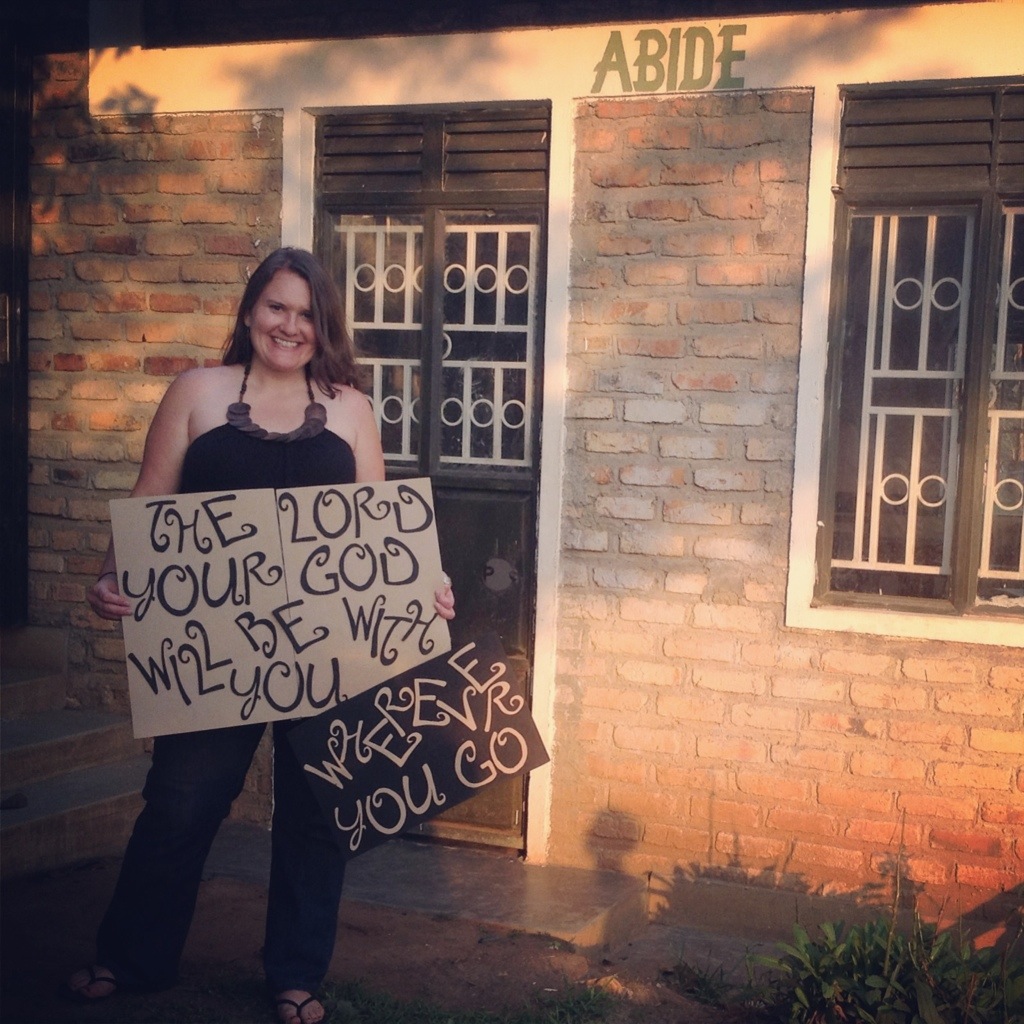 ABIDE
THE LORD
YOUR GOD
WILL BE WITH
YOU
WHEREVER
YOU GO